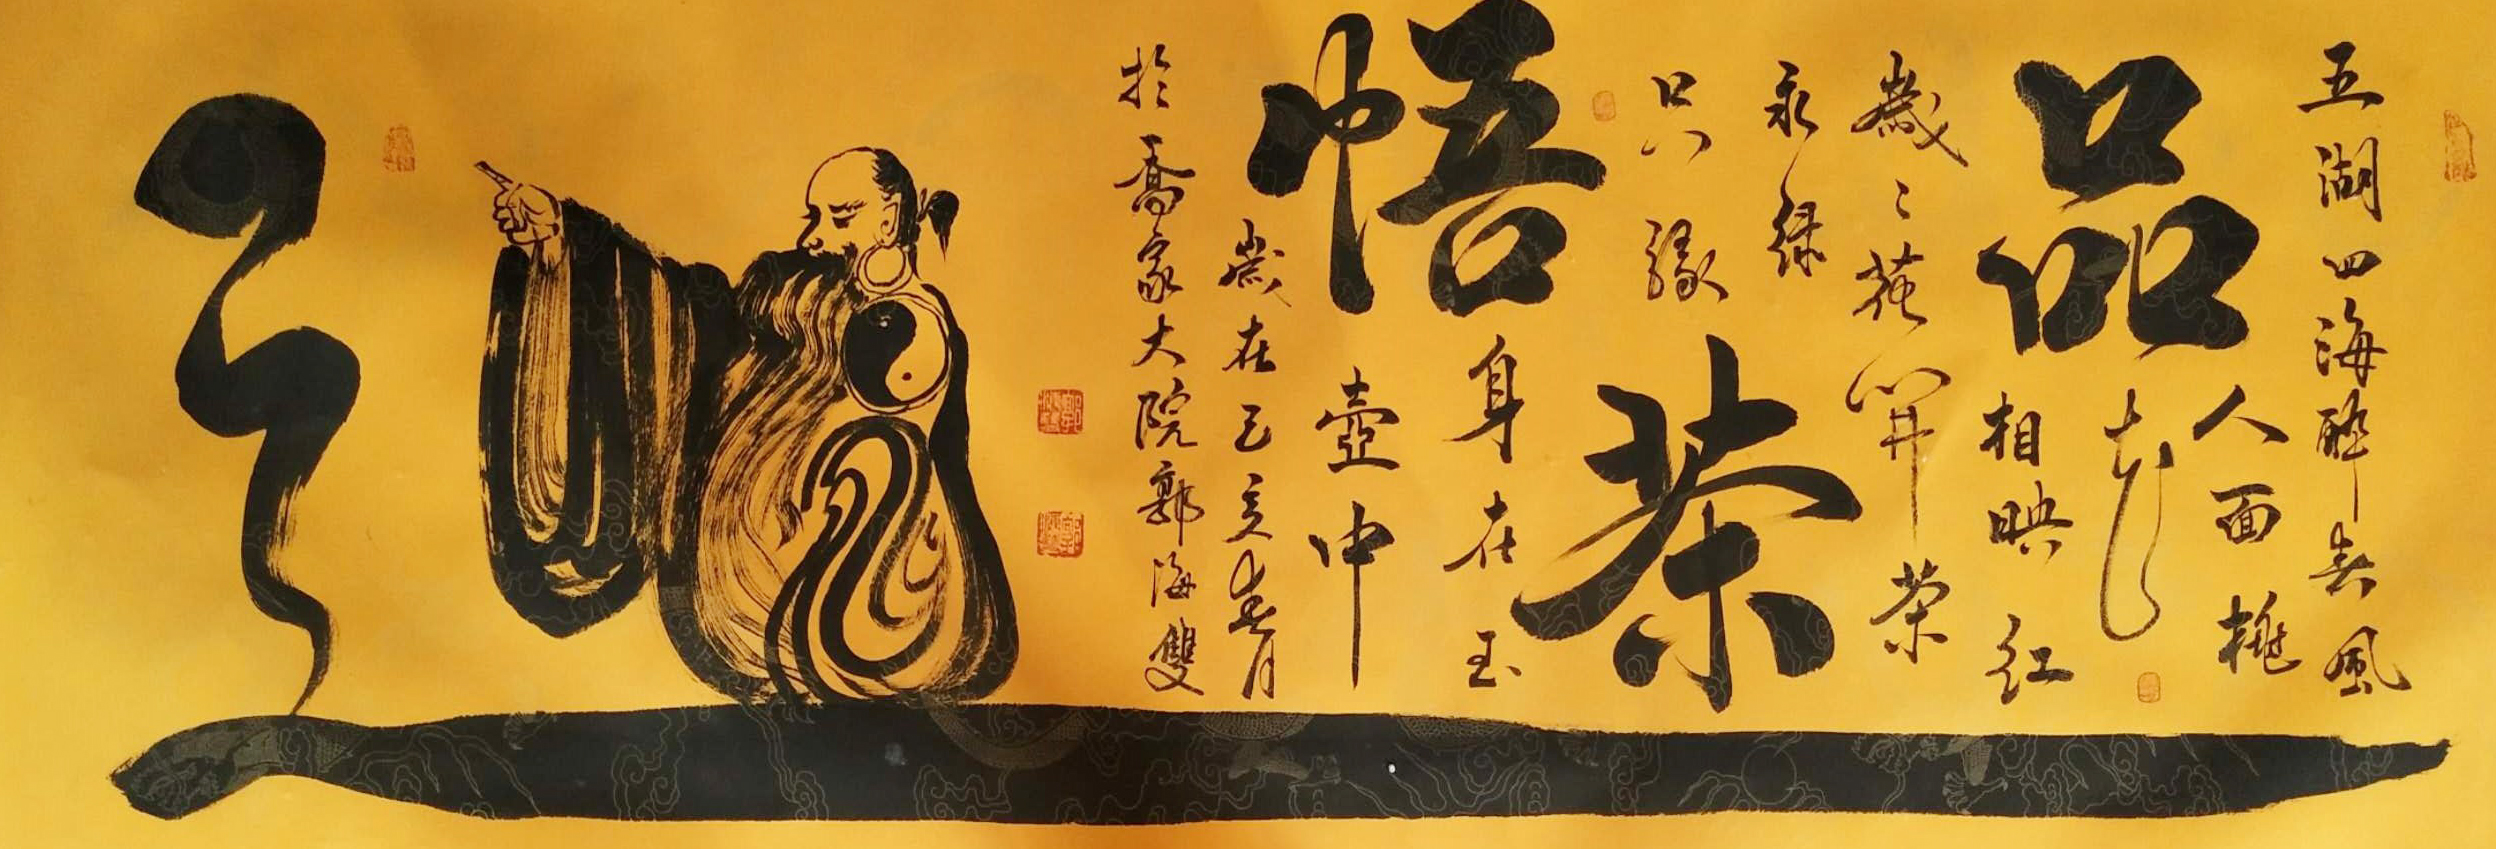 五湖四海醉春風
品
人面桃
花
相映紅
歲〻花開茶
永綠
茶
只緣
悟
身在玉
壺中
歲在己亥春月
於喬家大院郭海雙
道